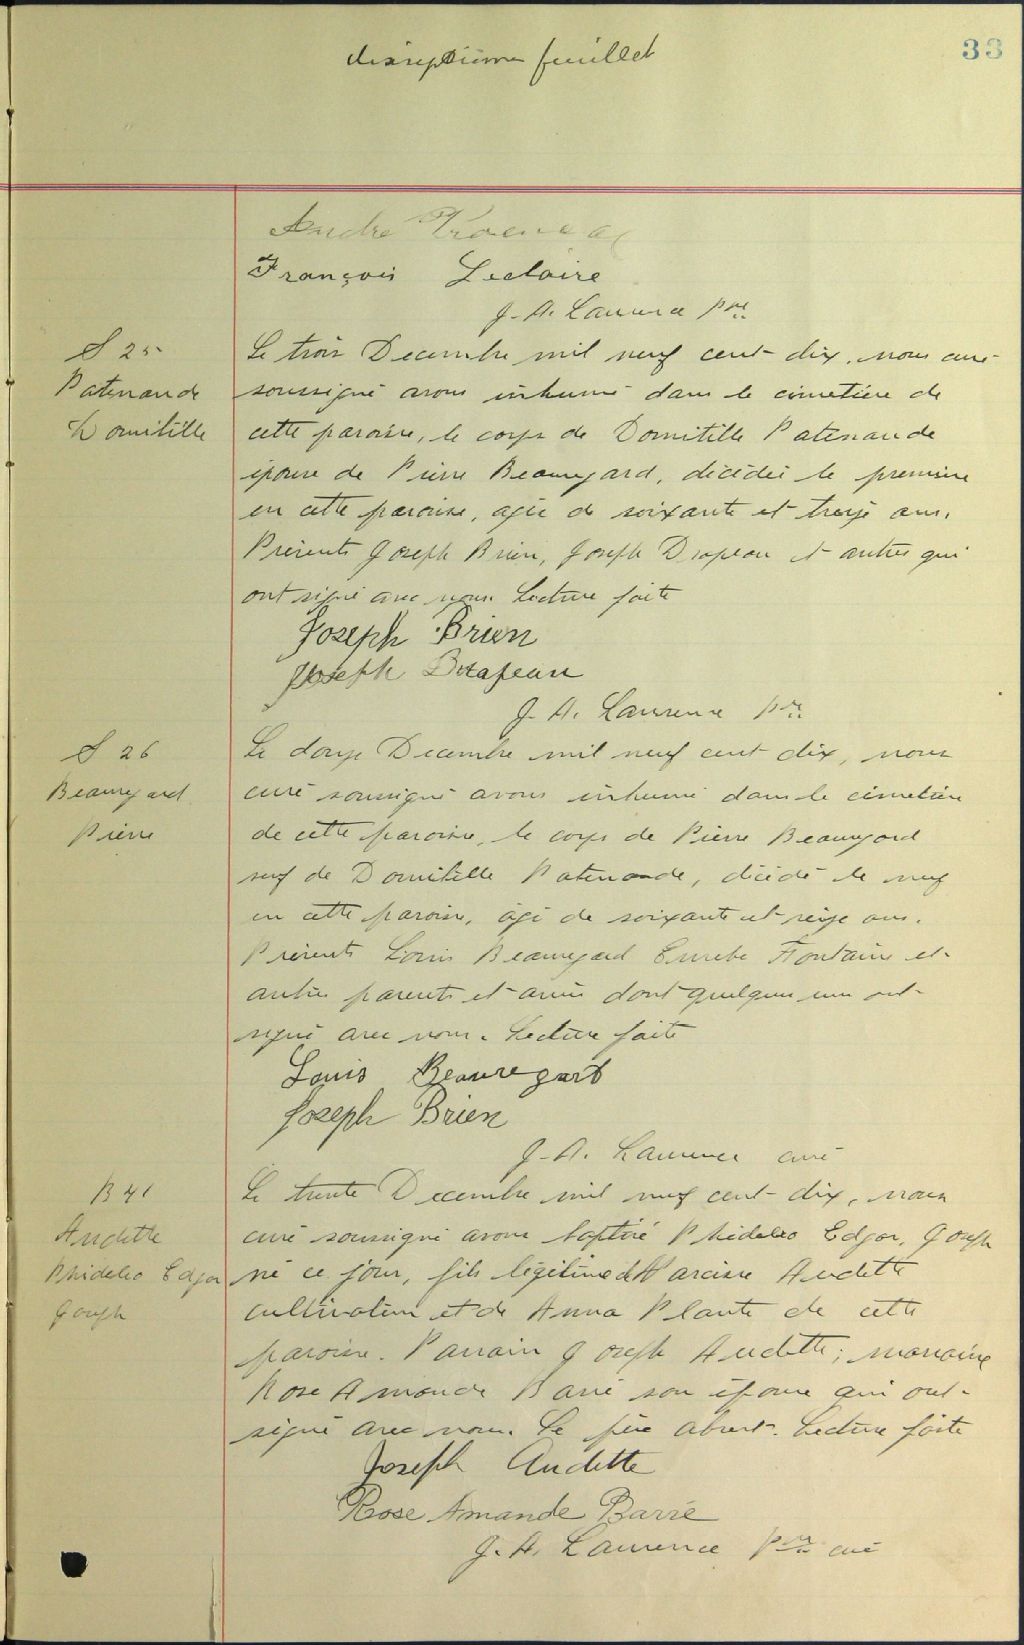 dixseptième feuillet
33
André
François Leclaire
J. A. Laurence Ptre
S 25
Patenaude
Domitille
Le trois Decembre mil neuf cent dix, nous curé
soussigné avons inhumé dans le cimetière de
cette paroisse, le corps de Domitille Patenaude
épouse de Pierre Beauregard, décédée le premier
en cette paroisse, agée de soixante et treize ans.
Présents Joseph Brien, Joseph Drapeau et autres qui
ont signé avec nous. Lecture faite
Joseph Brien
Joseph Drapeau
J. A. Laurence ptre
S 26
Beauregard
Pierre
Le douze Decembre mil neuf cent dix, nous
curé soussigné avons inhumé dans le cimetière
de cette paroisse, le corps de Pierre Beauregard
veuf de Domitille Patenaude, décédé le neuf
en cette paroisse, âgé de soixante et seize ans.
Présents Louis Beauregard Eusebe Fontaine et
autres parents et amis dont quelques uns ont
signé avec nous. Lecture faite
Louis Beauregart
Joseph Brien
J. A. Laurence curé
B 41
Audette
Phideleo Edgar
Joseph
Le trente Decembre mil neuf cent dix, nous
curé soussigné avons baptisé Phideleo Edgar, Joseph
né ce jour, fils légitime de Narcisse Audette
cultivateur et de Anna Plante de cette
paroisse. Parrain Joseph Audette; marraine
Rose Amande Barré son épouse qui ont
signé avec nous. Le père absent. Lecture faite
Joseph Audette
Rose Amande Barré
J. A. Laurence Ptre curé